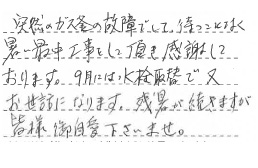 突然のガス釜の故障でして、待つことなく
暑い最中工事をして頂き感謝して
おります。9月には水栓取替で又
お世話になります。残暑が続きますが
皆様御自愛下さいませ。